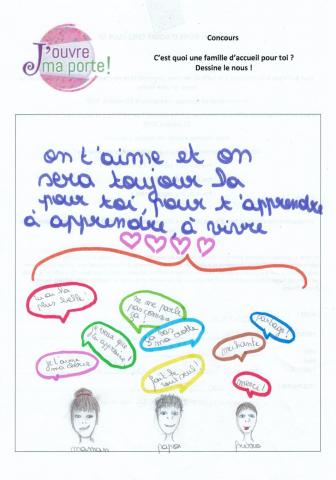 J'ouvre
ma porte!
Concours
C'est quoi une famille d'accueil pour toi ?
Dessine le nous !
on t'aime et on
sera toujour la
pour toi, pour t'apprendre
à apprendre, à vivre
plus belle
ne me parle
pas comme
ça !
je veux que
ma crotte
méchante
partage !
je t'aime
ma chérie
tout seul !
merci !
maman
papa